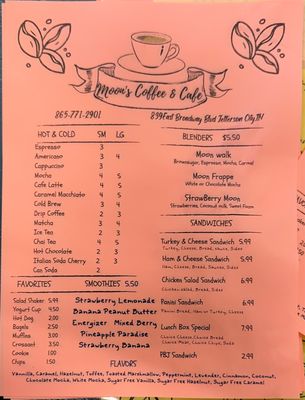 Moon's Coffee & Cafe
865-771-2901
899 East Broadway Blvd Jefferson City TN
HOT & COLD SM LG
Espresso 3
Americano 3 4
Cappuccino 3
Mocha 4 5
Cafe Latte 4 5
Caramel Macchiato 4 5
Cold Brew 3 4
Drip Coffee 2 3
Matcha 3 4
Ice Tea 2 3
Chai Tea 4 5
Hot Chocolate 2 3
Italian Soda Cherry 2 3
Can Soda 2
BLENDERS $5.50
Moon walk
Brownsugar, Espresso, Mocha, Carmel
Moon Frappe
White or Chocolate Mocha
StrawBerry Moon
Strawberries, Coconut milk, Sweet Foam
SANDWICHES
Turkey & Cheese Sandwich 5.99
Turkey, Cheese, Bread, Sauces, Sides
Ham & Cheese Sandwich 5.99
Ham, Cheese, Bread, Sauces, Sides
Chicken Salad Sandwich 6.99
Chicken salad, Bread, Sides
Panini Sandwich 6.99
Panini Bread, Ham or Turkey, Cheese
Lunch Box Special 7.99
Choice Cheese, Choice Bread
Choice Meat, Choice Chips, Soda
PBJ Sandwich 2.99
FAVORITES
Salad Shaker 5.99
Yogurt Cup 4.50
Hot Dog 2.00
Bagels 2.50
Muffins 3.00
Croissant 3.50
Cookie 1.00
Chips 1.50
SMOOTHIES 5.50
Strawberry Lemonade
Banana Peanut Butter
Energizer Mixed Berry
Pineapple Paradise
Strawberry Banana
FLAVORS
Vannilla, Caramel, Hazelnut, Toffee, Toasted Marshmallow, Peppermint, Lavender, Cinnamon, Coconut,
Chocolate Mocha, White Mocha, Sugar Free Vanilla, Sugar Free Hazelnut, Sugar Free Caramel